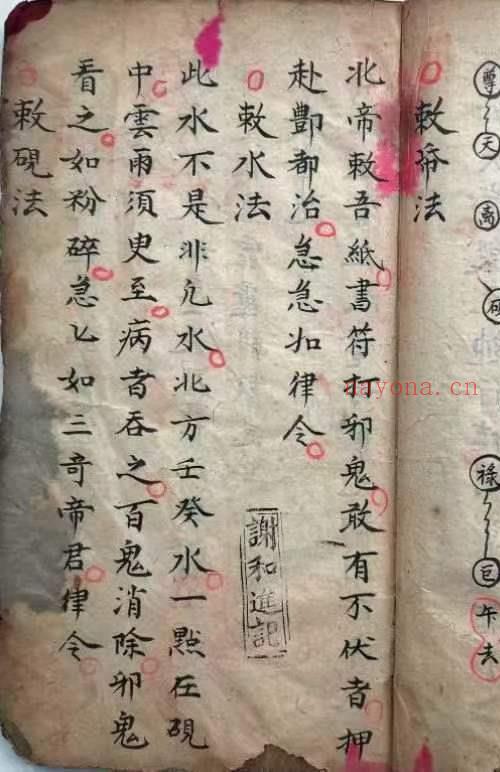 尊天
离
祿巨午去
敕帋法
北帝敕吾紙書符打邪鬼敢有不伏者押
赴酆都治急急如律令
謝和進記
敕水法
此水不是非凡水北方壬癸水一點在硯
中雲雨須史至病者吞之百鬼消除邪鬼
看之如粉碎急匕如三奇帝君律令
敕硯法
dayona.cn